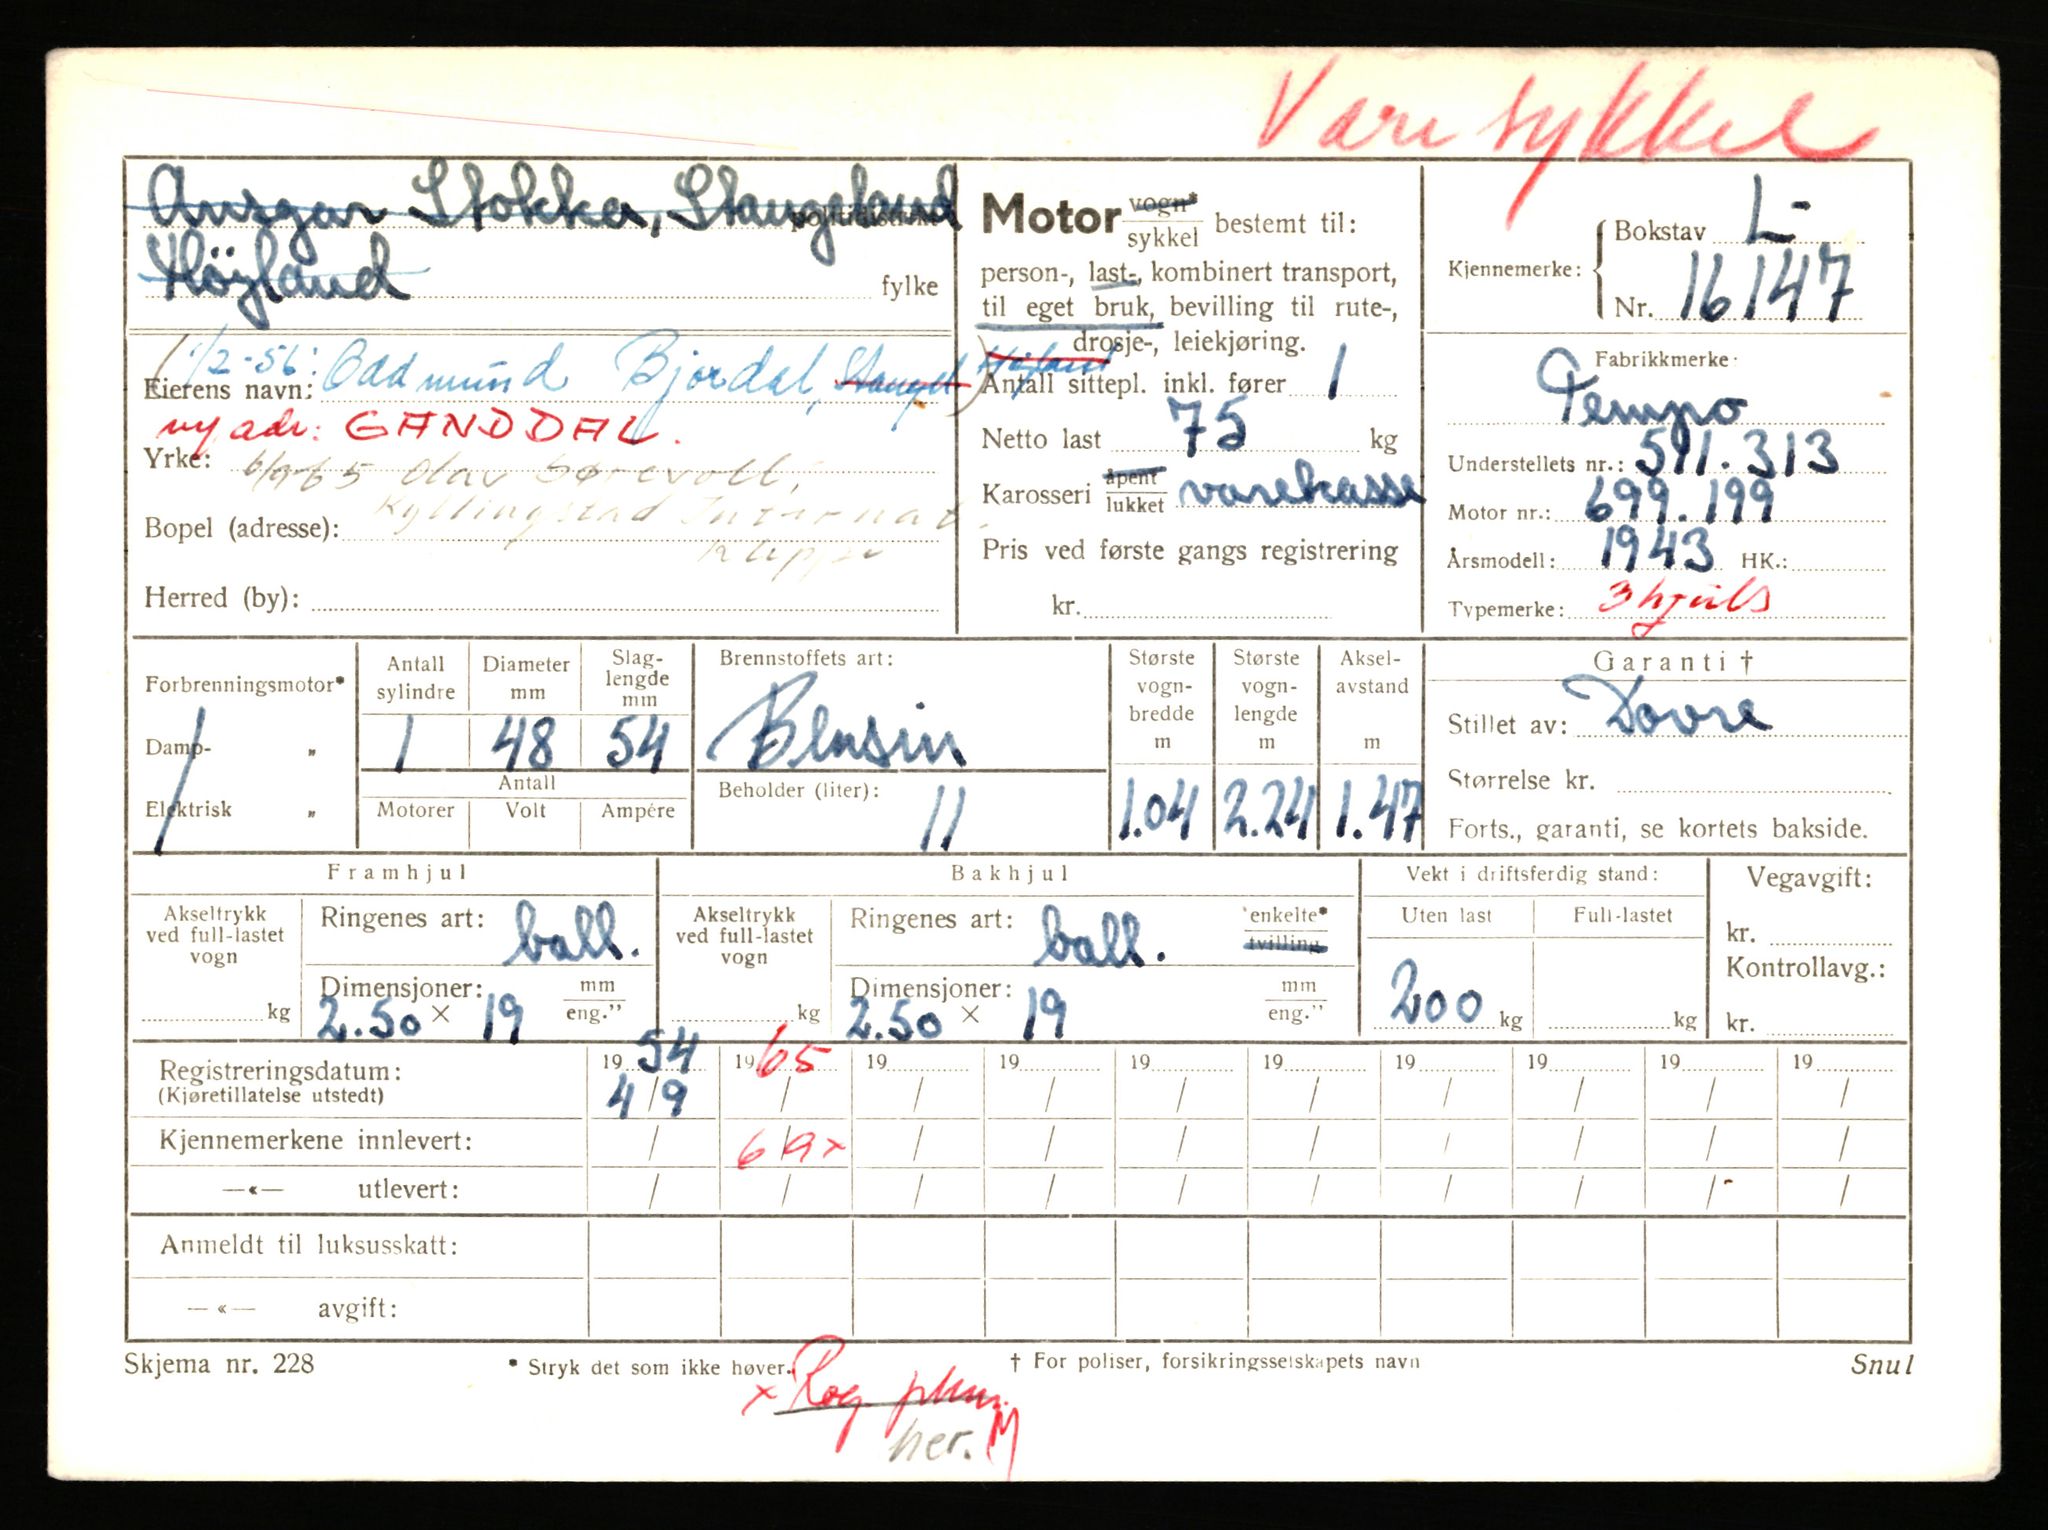 Varesykkel
Ansgar Stokka, Stangeland politidistrikt
Höyland fylke
1/2-56: Oddmund Bjordal, Stangel. Höyland
Eierens navn:
ny adr: GANDDAL.
Yrke: 6/9 65 Olav
Kyllingstad Internat,
Bopel (adresse): Kleppe
Herred (by):
Motor vogn* / sykkel bestemt til:
person-, last-, kombinert transport,
til eget bruk, bevilling til rute-,
drosje-, leiekjøring.
Antall sittepl. inkl. fører 1
Netto last 75 kg
Karosseri åpent / lukket varekasse
Pris ved første gangs registrering
kr.
Kjennemerke: Bokstav L-
Nr. 16147
Fabrikkmerke:
Tempo
Understellets nr.: 511.313
Motor nr.: 699.199
Årsmodell: 1943 HK.:
Typemerke: 3 hjuls
Forbrenningsmotor*
Damp- „
Elektrisk „
Antall sylindre Diameter mm Slag-lengde mm
1 48 54
Antall
Motorer Volt Ampére
Brennstoffets art:
Bensin
Beholder (liter): 11
Største vogn-bredde m Største vogn-lengde m Aksel-avstand m
1.04 2.24 1.47
Garanti †
Stillet av: Dovre
Størrelse kr.
Forts., garanti, se kortets bakside.
Framhjul
Akseltrykk ved full-lastet vogn
kg
Ringenes art: ball.
Dimensjoner: mm / eng.”
2.50 × 19
Bakhjul
Akseltrykk ved full-lastet vogn
kg
Ringenes art: ball. enkelte* / tvilling
Dimensjoner: mm / eng.”
2.50 × 19
Vekt i driftsferdig stand:
Uten last Full-lastet
200 kg kg
Vegavgift:
kr.
Kontrollavg.:
kr.
Registreringsdatum: 19 54 19 65 19 19 19 19 19 19 19 19
(Kjøretillatelse utstedt) 4/9 / / / / / / / / /
Kjennemerkene innlevert: / 6/9x / / / / / / / /
—«— utlevert: / / / / / / / / / /
Anmeldt til luksusskatt:
—«— avgift:
Skjema nr. 228 * Stryk det som ikke høver. † For poliser, forsikringsselskapets navn Snul
x Rog.
her. M